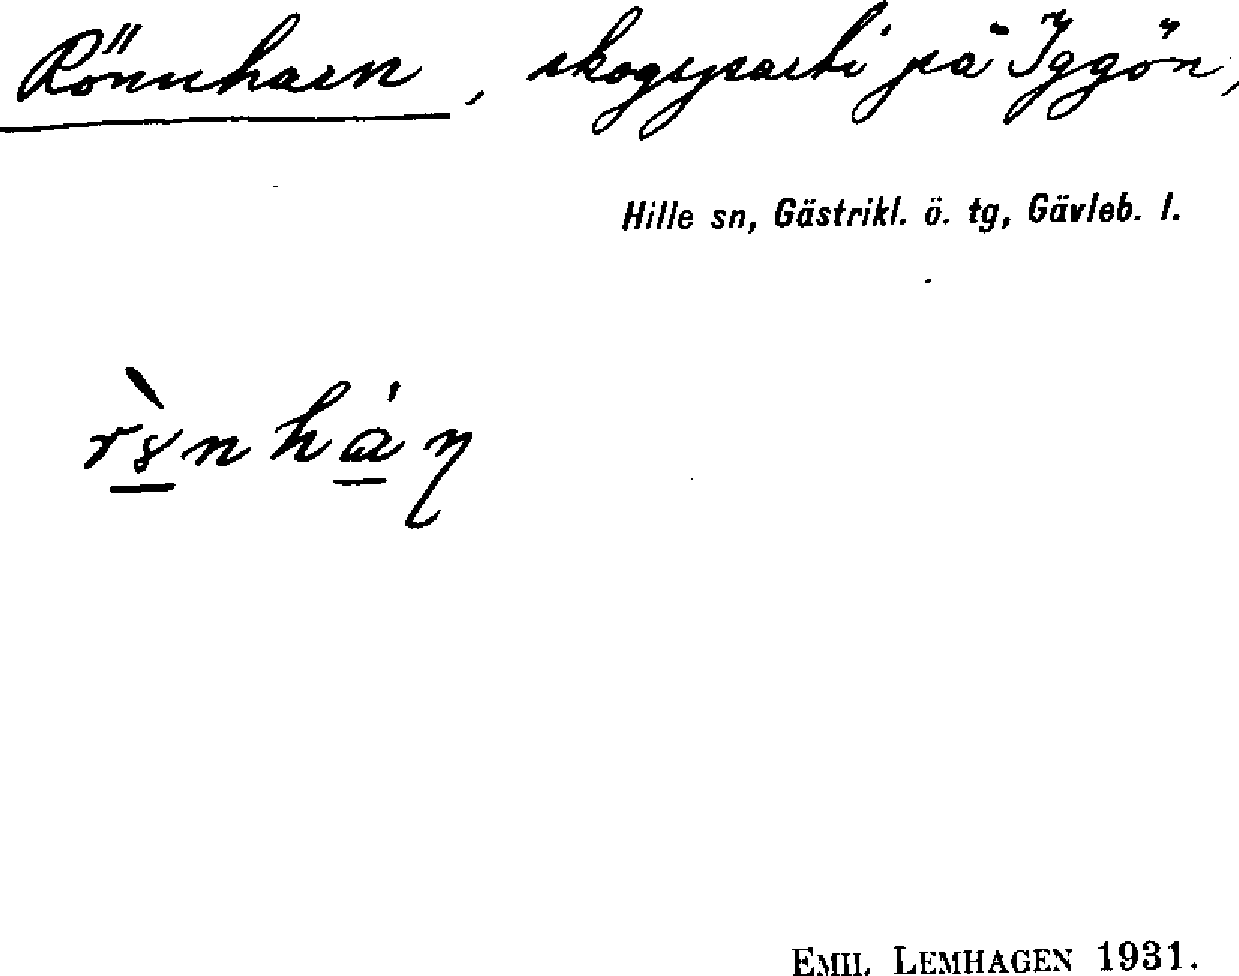 Rönnharn, skogsparti på Iggön,
Hille sn, Gästrikl. ö. tg, Gävleb. l.
EMIL LEMHAGEN 1931.